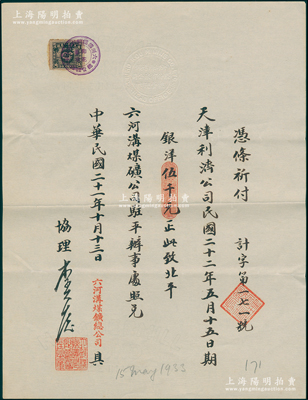 上海阳明拍卖
憑條祈付 計字第一七一號
天津利濟公司民國二十二年五月十五日期
銀洋伍千元正此致北平
六河溝煤礦公司駐平辦事處照兌
中華民國二十一年十月十三日
六河溝煤鑛總公司 具
協理
15 May 1933
171